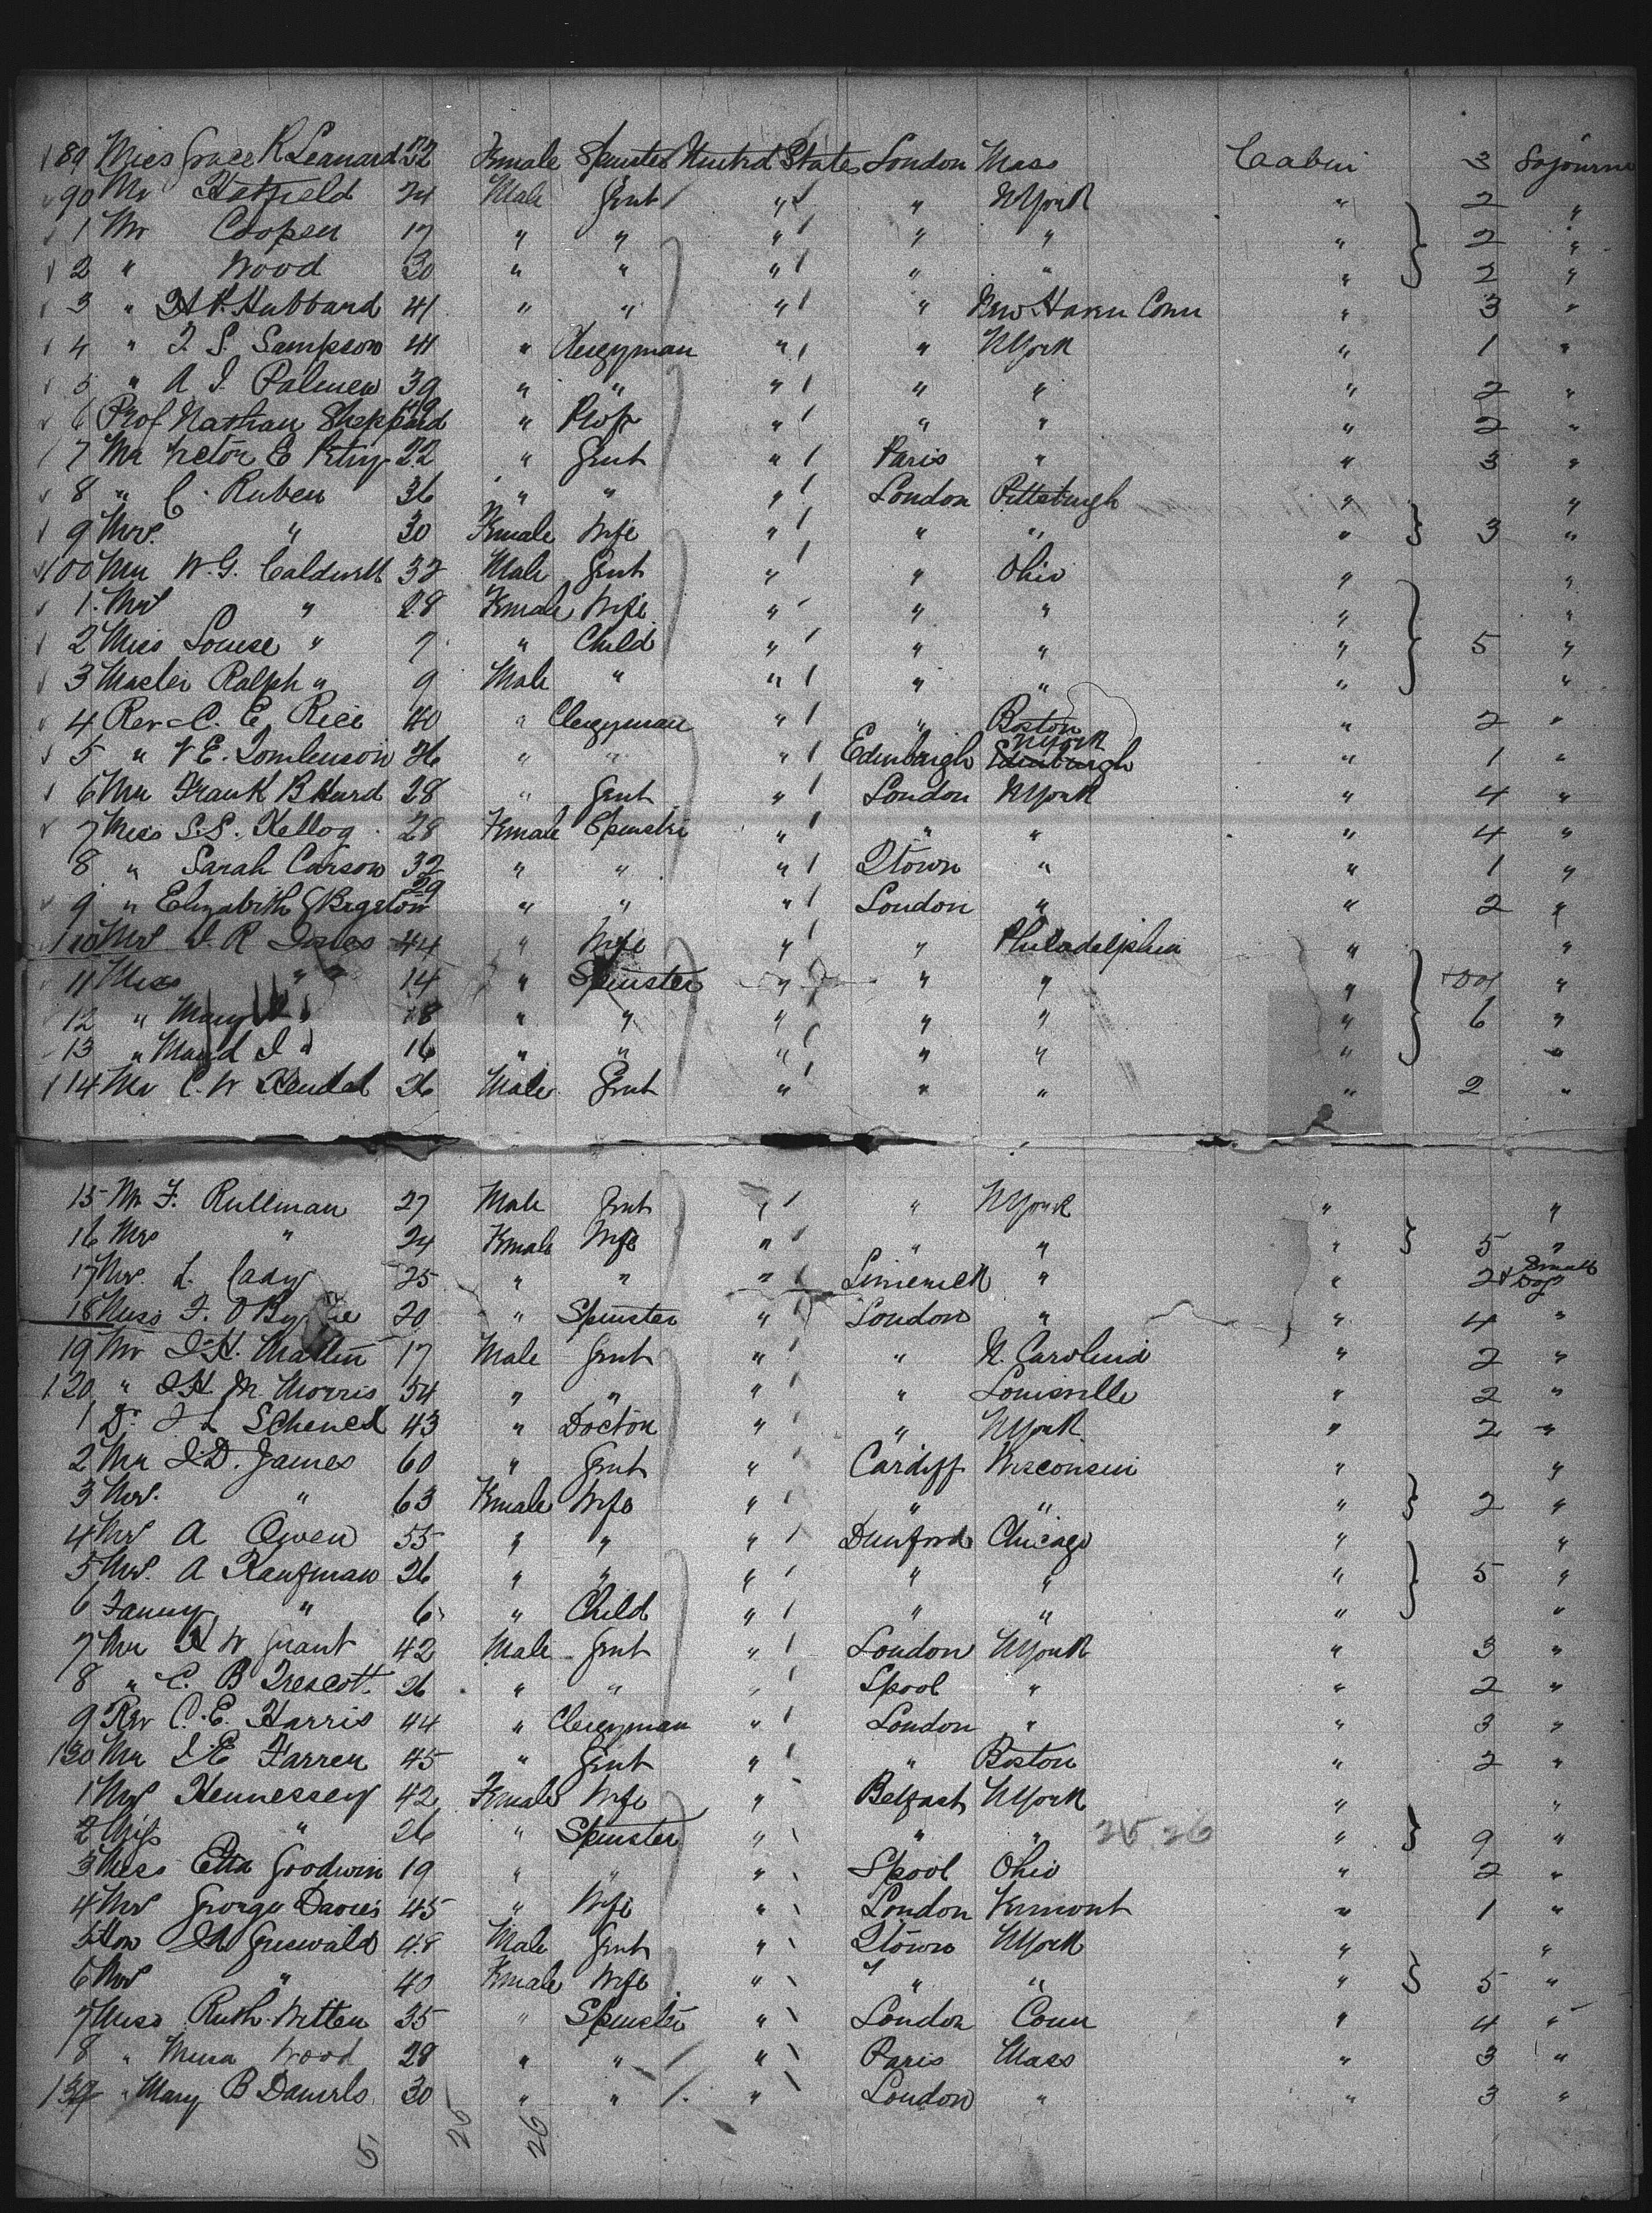 89 Miss Grace R Leanard 22 Female Spinster United States London Mass Cabin 3 Sojourn
90 Mr Hatfield 24 Male Gent " " NYork " 2 "
1 Mr Cooper 17 " " " " " " 2 "
2 " Wood 30 " " " " " " 2 "
3 " H. Hubbard 41 " " " " New Haven Conn " 3 "
4 " T. S. Sampson 41 " Clergyman " " NYork " 1 "
5 " A J. Palmer 39 " " " " " " 2 "
6 Prof Nathan Sheppard 49 " Prof " " " " 2 "
7 Mr Victor E Petry 22 " Gent " Paris " " 3 "
8 " C. Ruben 36 " " " London Pittsburgh " "
9 Mrs. " 30 Female Wife " " " " 3 "
100 Mr W. G. Caldwell 32 Male Gent " " Ohio " "
1. Mrs " 28 Female Wife " " " " "
2 Miss Louise " 7 " Child " " " " 5 "
3 Master Ralph " 9 Male " " " " " "
4 Rev C. E. Rice 40 " Clergyman " " Boston " 2 "
5 " V E. Tomlinson 26 " " " Edinburgh NYork Edinburgh " 1 "
6 Mr Frank B Hurd 28 " Gent " London NYork " 4 "
7 Miss S. S. Kellog 28 Female Spinster " " " " 4 "
8 " Sarah Carson 32 " " " Qtown " " 1 "
9 " Elizabeth Bigelow 29 " " " London " " 2 "
110 Mrs J. R Jones 44 " Wife " " Philadelphia " "
11 Miss " " 14 " Spinster " " " " "
12 " Mary " 18 " " " " " " 6 "
13 " Maud J " 16 " " " " " " "
114 Mr C. W Kendal 26 Male Gent " " " " 2 "
15 Mr F. Rullman 27 Male Gent " " NYork " "
16 Mrs " 24 Female Wife " " " " 5 "
17 Mrs. L. Cady 25 " " " Limerick " " 2 & Small Dog
18 Miss F. 20 " Spinster " London " " 4 "
19 Mr J. H. Martin 17 Male Gent " " N. Carolina " 2 "
120 " J H M Morris 54 " " " " Louisville " 2 "
1 Dr. J L Schenck 43 " Doctor " " NYork " 2 "
2 Mr J. D. James 60 " Gent " Cardiff Wisconsin " "
3 Mrs. " 63 Female Wife " " " " 2 "
4 Mrs A Owen 55 " " " Dunford Chicago " "
5 Mrs. A Kaufman 26 " " " " " " 5 "
6 Fanny " 6 " Child " " " " "
7 Mr W Grant 42 Male Gent " London NYork " 3 "
8 " C. B Trescott 26 " " " Lpool " " 2 "
9 Rev C. E. Harris 44 " Clergyman " London " " 3 "
130 Mr J. E Farren 45 " Gent " " Boston " 2 "
1 Mrs Hennessey 42 Female Wife " Belfast NYork " "
2 Miss " 26 " Spinster " " " 25 26 " 9 "
3 Miss Etta Goodwin 19 " " " Lpool Ohio " 2 "
4 Mrs George Davies 45 " Wife " London Vermont " 1 "
5 Hon Griswald 48 Male Gent " Qtown NYork " "
6 Mrs " 40 Female Wife " " " " 5 "
7 Miss Ruth Witten 35 " Spinster " London Conn " 4 "
8 " Wood 28 " " " Paris Mass " 3 "
139 " Mary B Daniels 30 " " " London " " 3 "
5 25 26